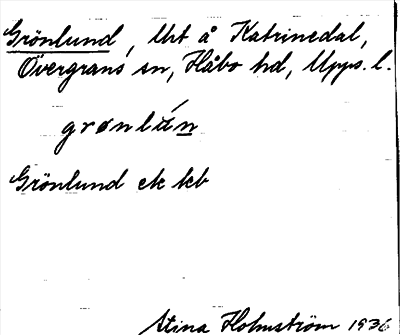 Grönlund, lht å Katrinedal,
Övergrans sn, Håbo hd, Upps. l.
grønlún
Grönlund ek kb
Stina Holmström 1936